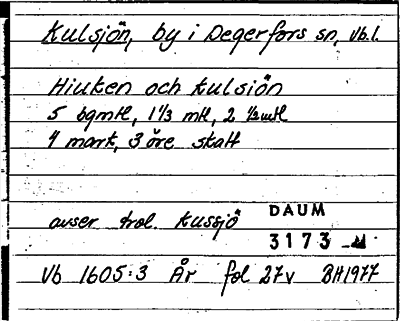 Kulsjön, by i Degerfors sn, Vb.l.
Hiuken och Kulsiön
5 bgmtl, 1 1/3 mtl, 2 1/2 mtl
4 mark, 3 öre skatt
avser trol. Kussjö
DAUM
3173
Vb 1605:3 År fol 27v BH1977